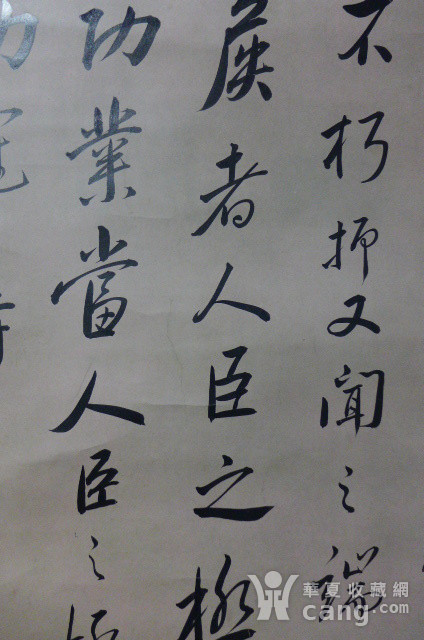 不朽抑又聞之端
矦者人臣之極
功業當人臣之極
華夏收藏網
cang.com